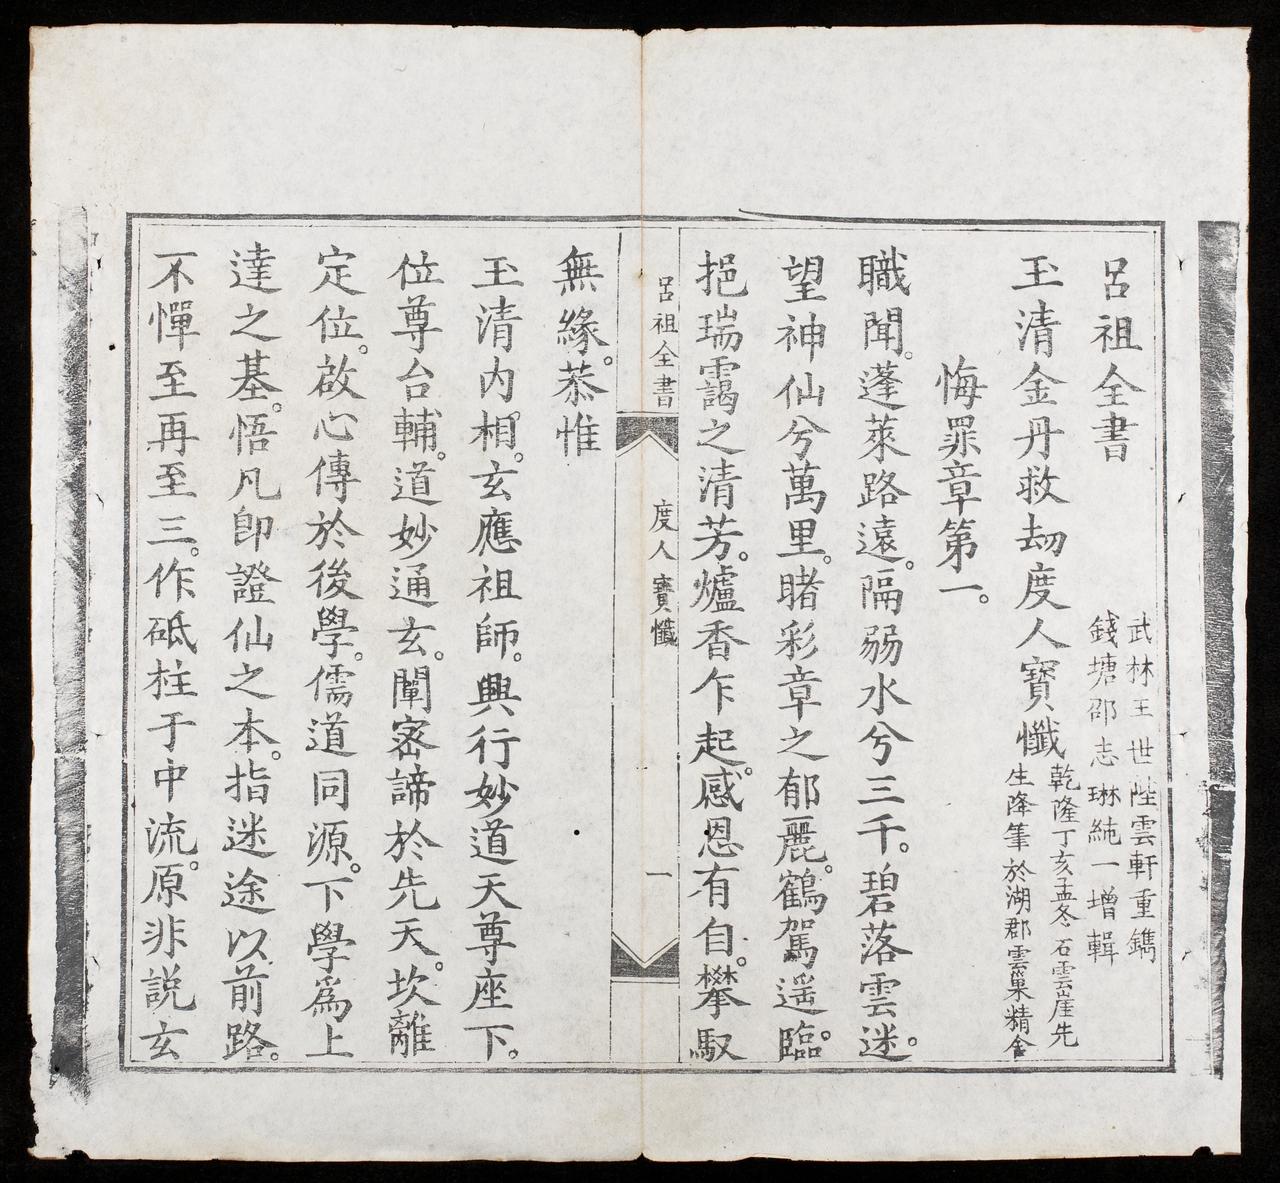 呂祖全書
武林王世陛雲軒重鐫
錢塘邵志琳純一增輯
玉清金丹救劫度人寶懺
乾隆丁亥孟冬石雲崖先
生降筆於湖郡雲巢精舍
悔罪章第一。
職聞。蓬萊路遠。隔弱水兮三千。碧落雲迷。
望神仙兮萬里。睹彩章之郁麗。鶴駕遥臨。
挹瑞靄之清芳。爐香乍起。感恩有自。攀馭
呂祖全書
度人寶懺
一
無緣。恭惟
玉清内相。玄應祖師。興行妙道天尊座下。
位尊台輔。道妙通玄。闡宻諦於先天。坎離
定位。啟心傳於後學。儒道同源。下學爲上
達之基。悟凡卽證仙之本。指迷途以前路。
不憚至再至三。作砥柱于中流。原非説玄